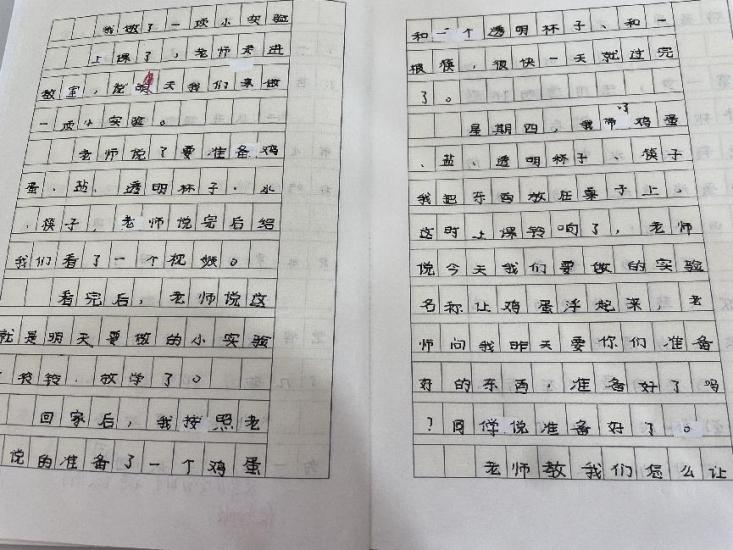 我做了一项小实验
上课了，老师走进
教室，说明天我们来做
一项小实验。
老师说了要准备鸡
蛋、盐、透明杯子、水
、筷子，老师说完后给
我们看了一个视频。
看完后，老师说这
就是明天要做的小实验
铃铃，放学了。
回家后，我按照老
说的准备了一个鸡蛋
和一个透明杯子、和一
很快一天就过完
了。
星期四，我带了鸡蛋
、盐、透明杯子、筷子
我把东西放在桌子上。
这时上课铃响了，老师
说今天我们要做的实验
名称让鸡蛋浮起来，老
师问我昨天要你们准备
好的东西，准备好了吗
？同学说准备好了。
老师教我们怎么让